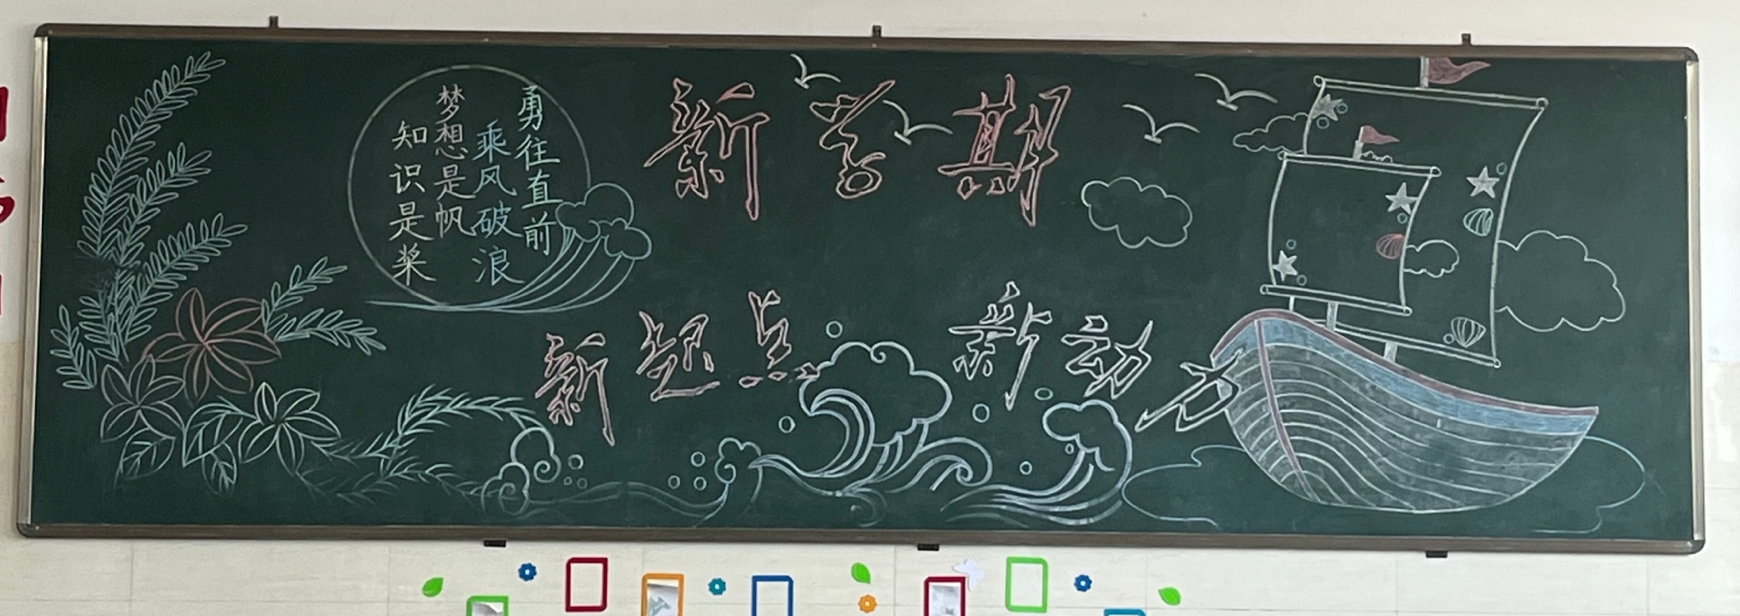 勇往直前
乘风破浪
梦想是帆
知识是桨
新学期
新起点 新动力